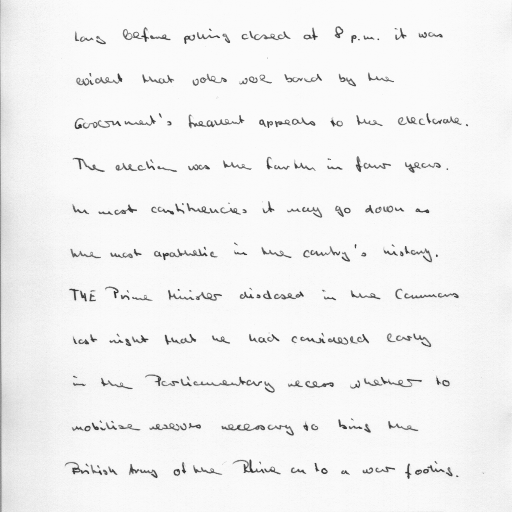 Long before polling closed at 8 p.m. it was
evident that votes were bored by the
Government's frequent appeals to the electorate.
The election was the fourth in four years.
In most constituencies it may go down as
the most apathetic in the country's history.
THE Prime Minister disclosed in the Commons
last night that he had considered early
in the Parliamentary recess whether to
mobilise reserves necessary to bring the
British Army of the Rhine on to a war footing.